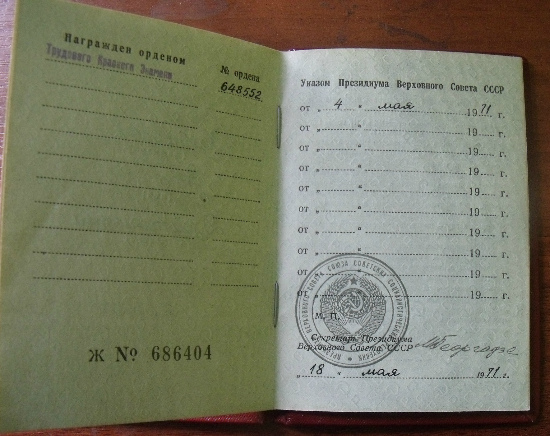 Награжден орденом
Трудового Красного Знамени
№ ордена
648552
Ж № 686404
Указом Президиума Верховного Совета СССР
от „ 4 “ мая 1971 г.
от „ “ 19 г.
от „ “ 19 г.
от „ “ 19 г.
от „ “ 19 г.
от „ “ 19 г.
от „ “ 19 г.
от „ “ 19 г.
от „ “ 19 г.
от „ “ 19 г.
М. П.
Секретарь Президиума
Верховного Совета СССР
МГеоргадзе
„ 18 “ мая 1971 г.